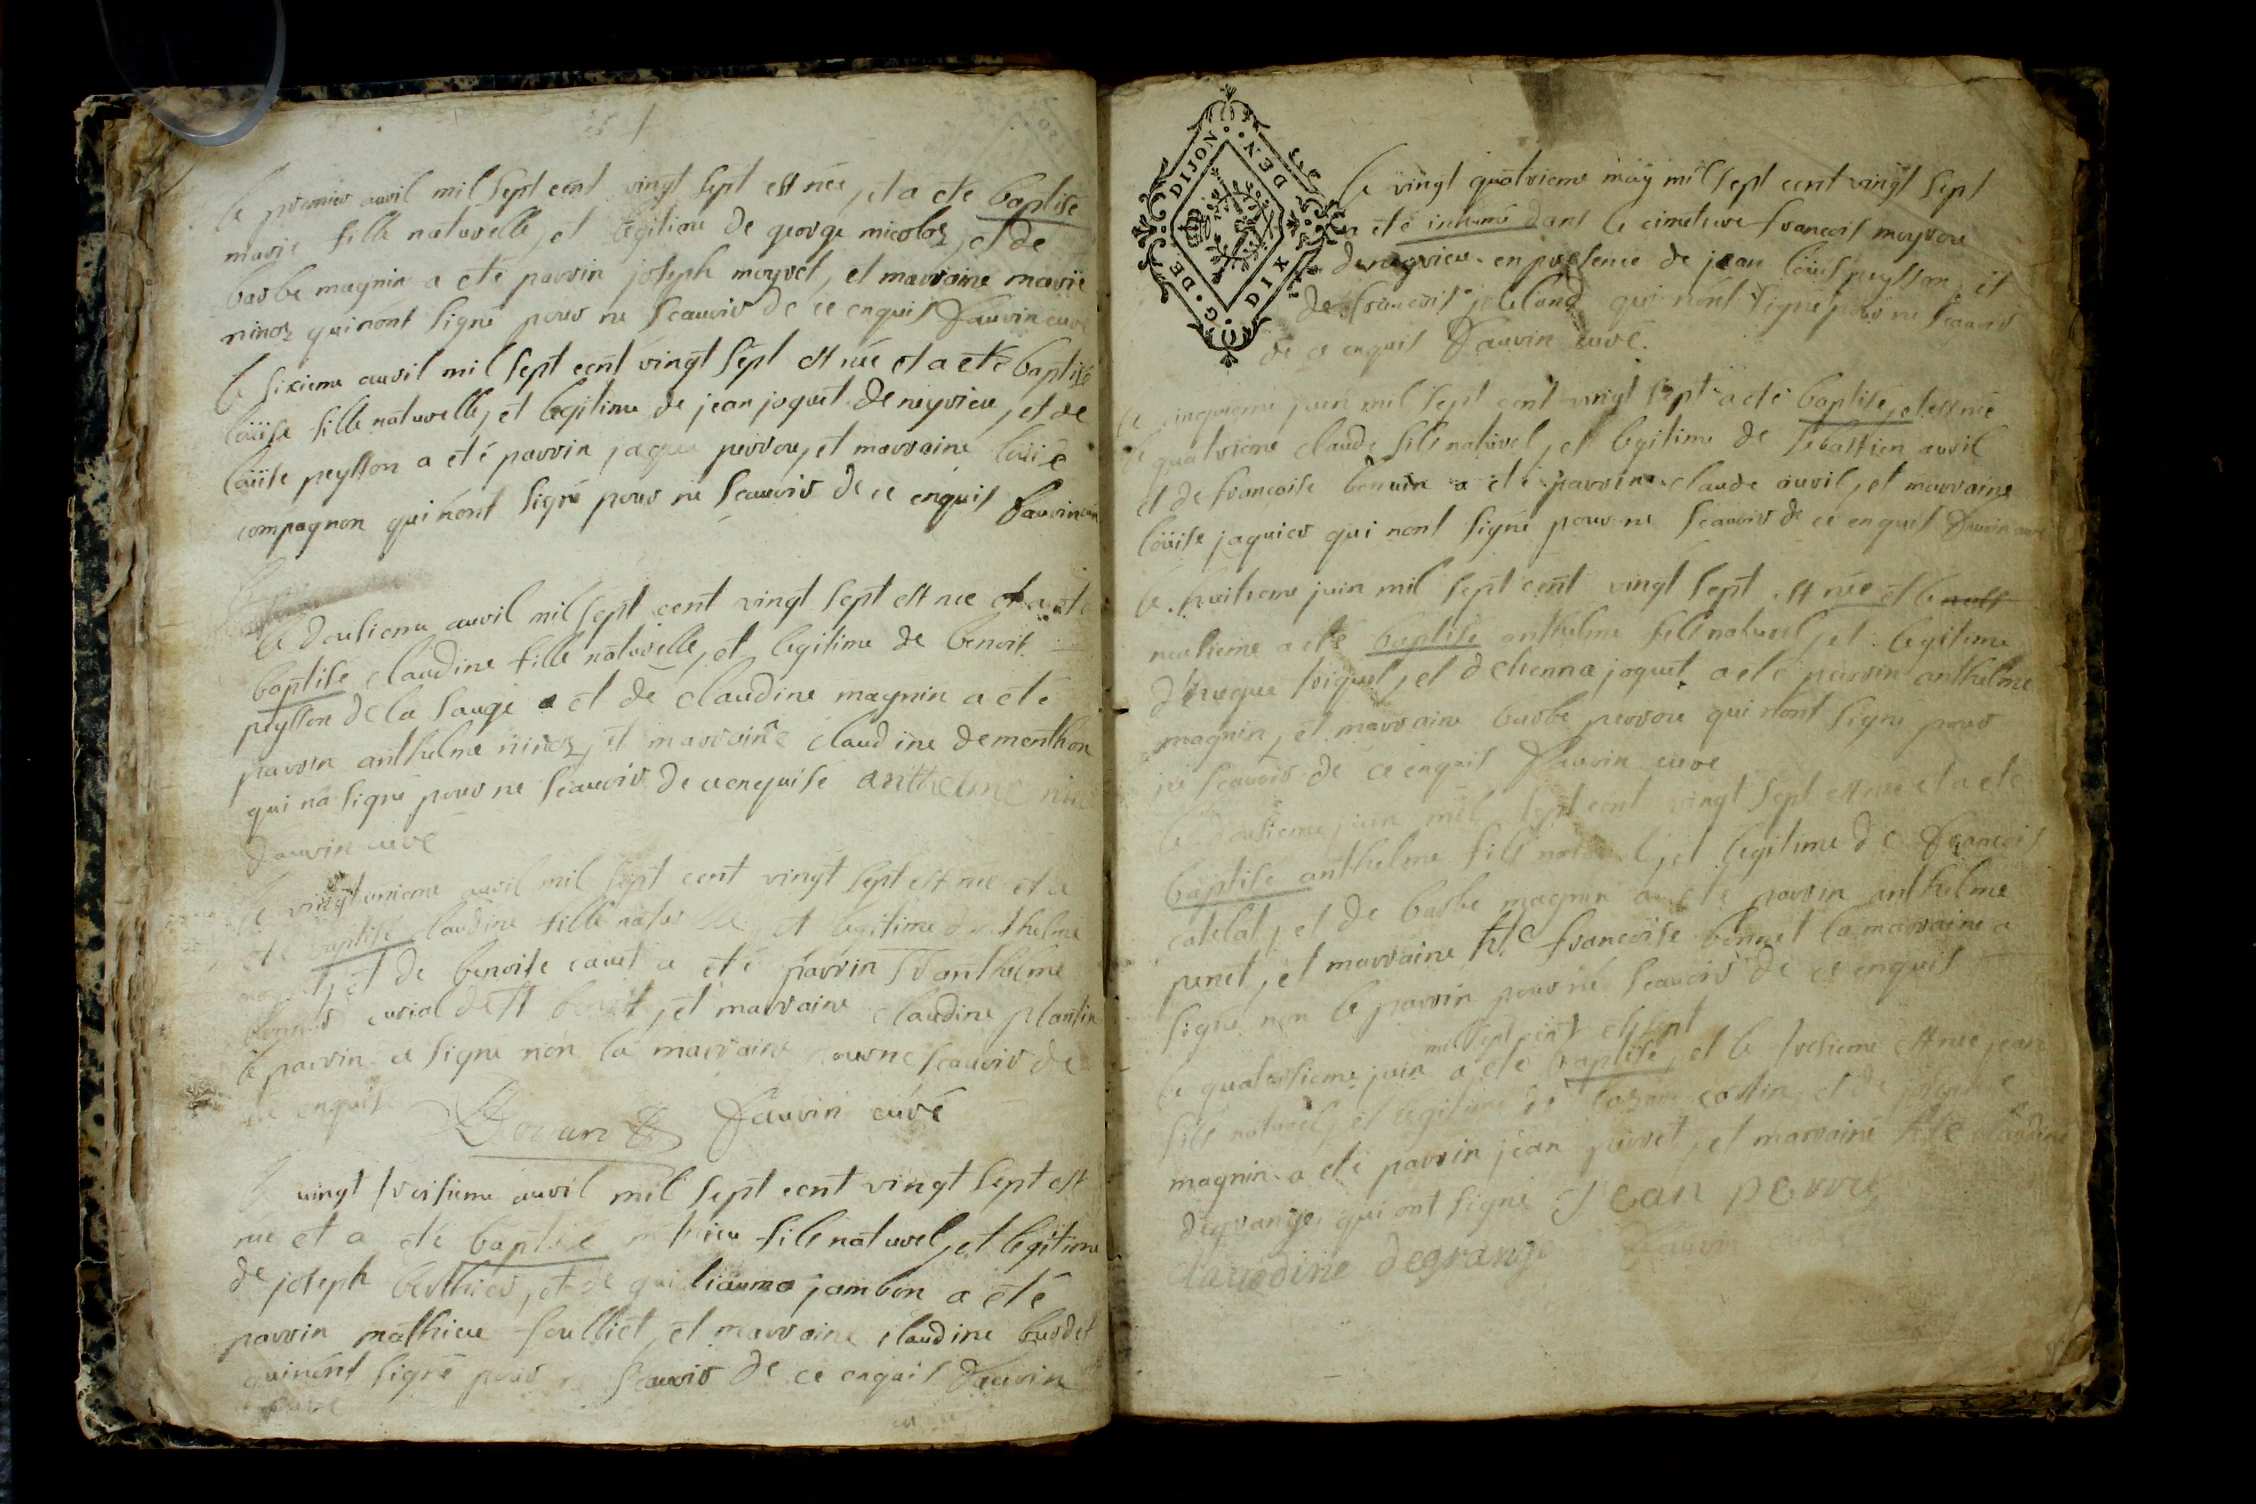 le premier avril mil sept cent vingt sept est née, et a ete baptisé
marie fille naturelle, et legitime de george micoloz, et de
barbe magnin a eté parrin joseph moyret, et marraine marie
ninoz qui nont signé pour ne scauoir de ce enquis Dauvin curé
le sixieme avril mil sept cent vingt sept est née et a eté baptisé
loüise fille naturelle, et legitime de jean joquet de neyrieu, et de
loüise peysson a eté parrin jaque perrou, et marraine loüise
compagnon qui nont signé pour ne scauoir de ce enquis Dauvin curé
le dousieme avril mil sept cent vingt sept est née et a eté
baptisé claudine fille naturelle, et legitime de benoit
peysson de la sauge et de claudine magnin a eté
parrin anthelme ninoz, et marraine claudine dementhon
qui na signé pour ne scauoir de ce enquise anthelme nin
Dauvin curé
le vingt unieme avril mil sept cent vingt sept est née et a
eté baptisé claudine fille naturelle, et legitime danthelme
et de benoite cauet a eté parrin Sr anthelme
curial de St benoit, et marraine claudine plantin
le parrin a signé non la marraine pour ne scauoir de
ce enquise Dauvin curé
le vingt troisieme avril mil sept cent vingt sept est
né et a eté baptisé mathieu fils naturel, et legitime
de joseph berthier, et de guilliauma jambon a eté
parrin mathieu foulliet, et marraine claudine burdet
qui nont signé pour ne scauoir de ce enquis Dauvin
curé
G. DE DIJON DEN DIX
le vingt quatrieme may mil sept cent vingt sept
a eté inhumé dans le cimetiere francois moyrou
de neyrieu en presence de jean loüis peysson, et
de francois qui nont signé pour ne scauoir
de ce enquis Dauvin curé.
le cinquieme juin mil sept cent vingt sept a eté baptisé, et est né
le quatrieme claude fils naturel, et legitime de sebastien avril
et de francoise bonnin a eté parrin claude avril, et marraine
loüise jaquier qui nont signé pour ne scauoir de ce enquis Dauvin curé
le huitieme juin mil sept cent vingt sept est née et le
neufieme a eté baptisé anthelme fils naturel, et legitime
et detienna joquet a eté parrin anthelme
magnin, et marraine barbe perrou qui nont signé pour
ne scauoir de ce enquis Dauvin curé
le dousieme juin mil sept cent vingt sept est née et a eté
baptisé anthelme fils naturel, et legitime de francois
catelat, et de barbe magnin a eté parrin anthelme
penet, et marraine francoise bonnet la marraine a
signé non le parrin pour ne scauoir de ce enquis
mil sept cent et sept
le quatorsieme juin a eté baptisé, et le tresieme est née jean
fils naturel, et legitime de costin, et de
magnin a eté parrin jean perret, et marraine claudine
degrange, qui ont signé Jean perret
claudine degrange Dauvin